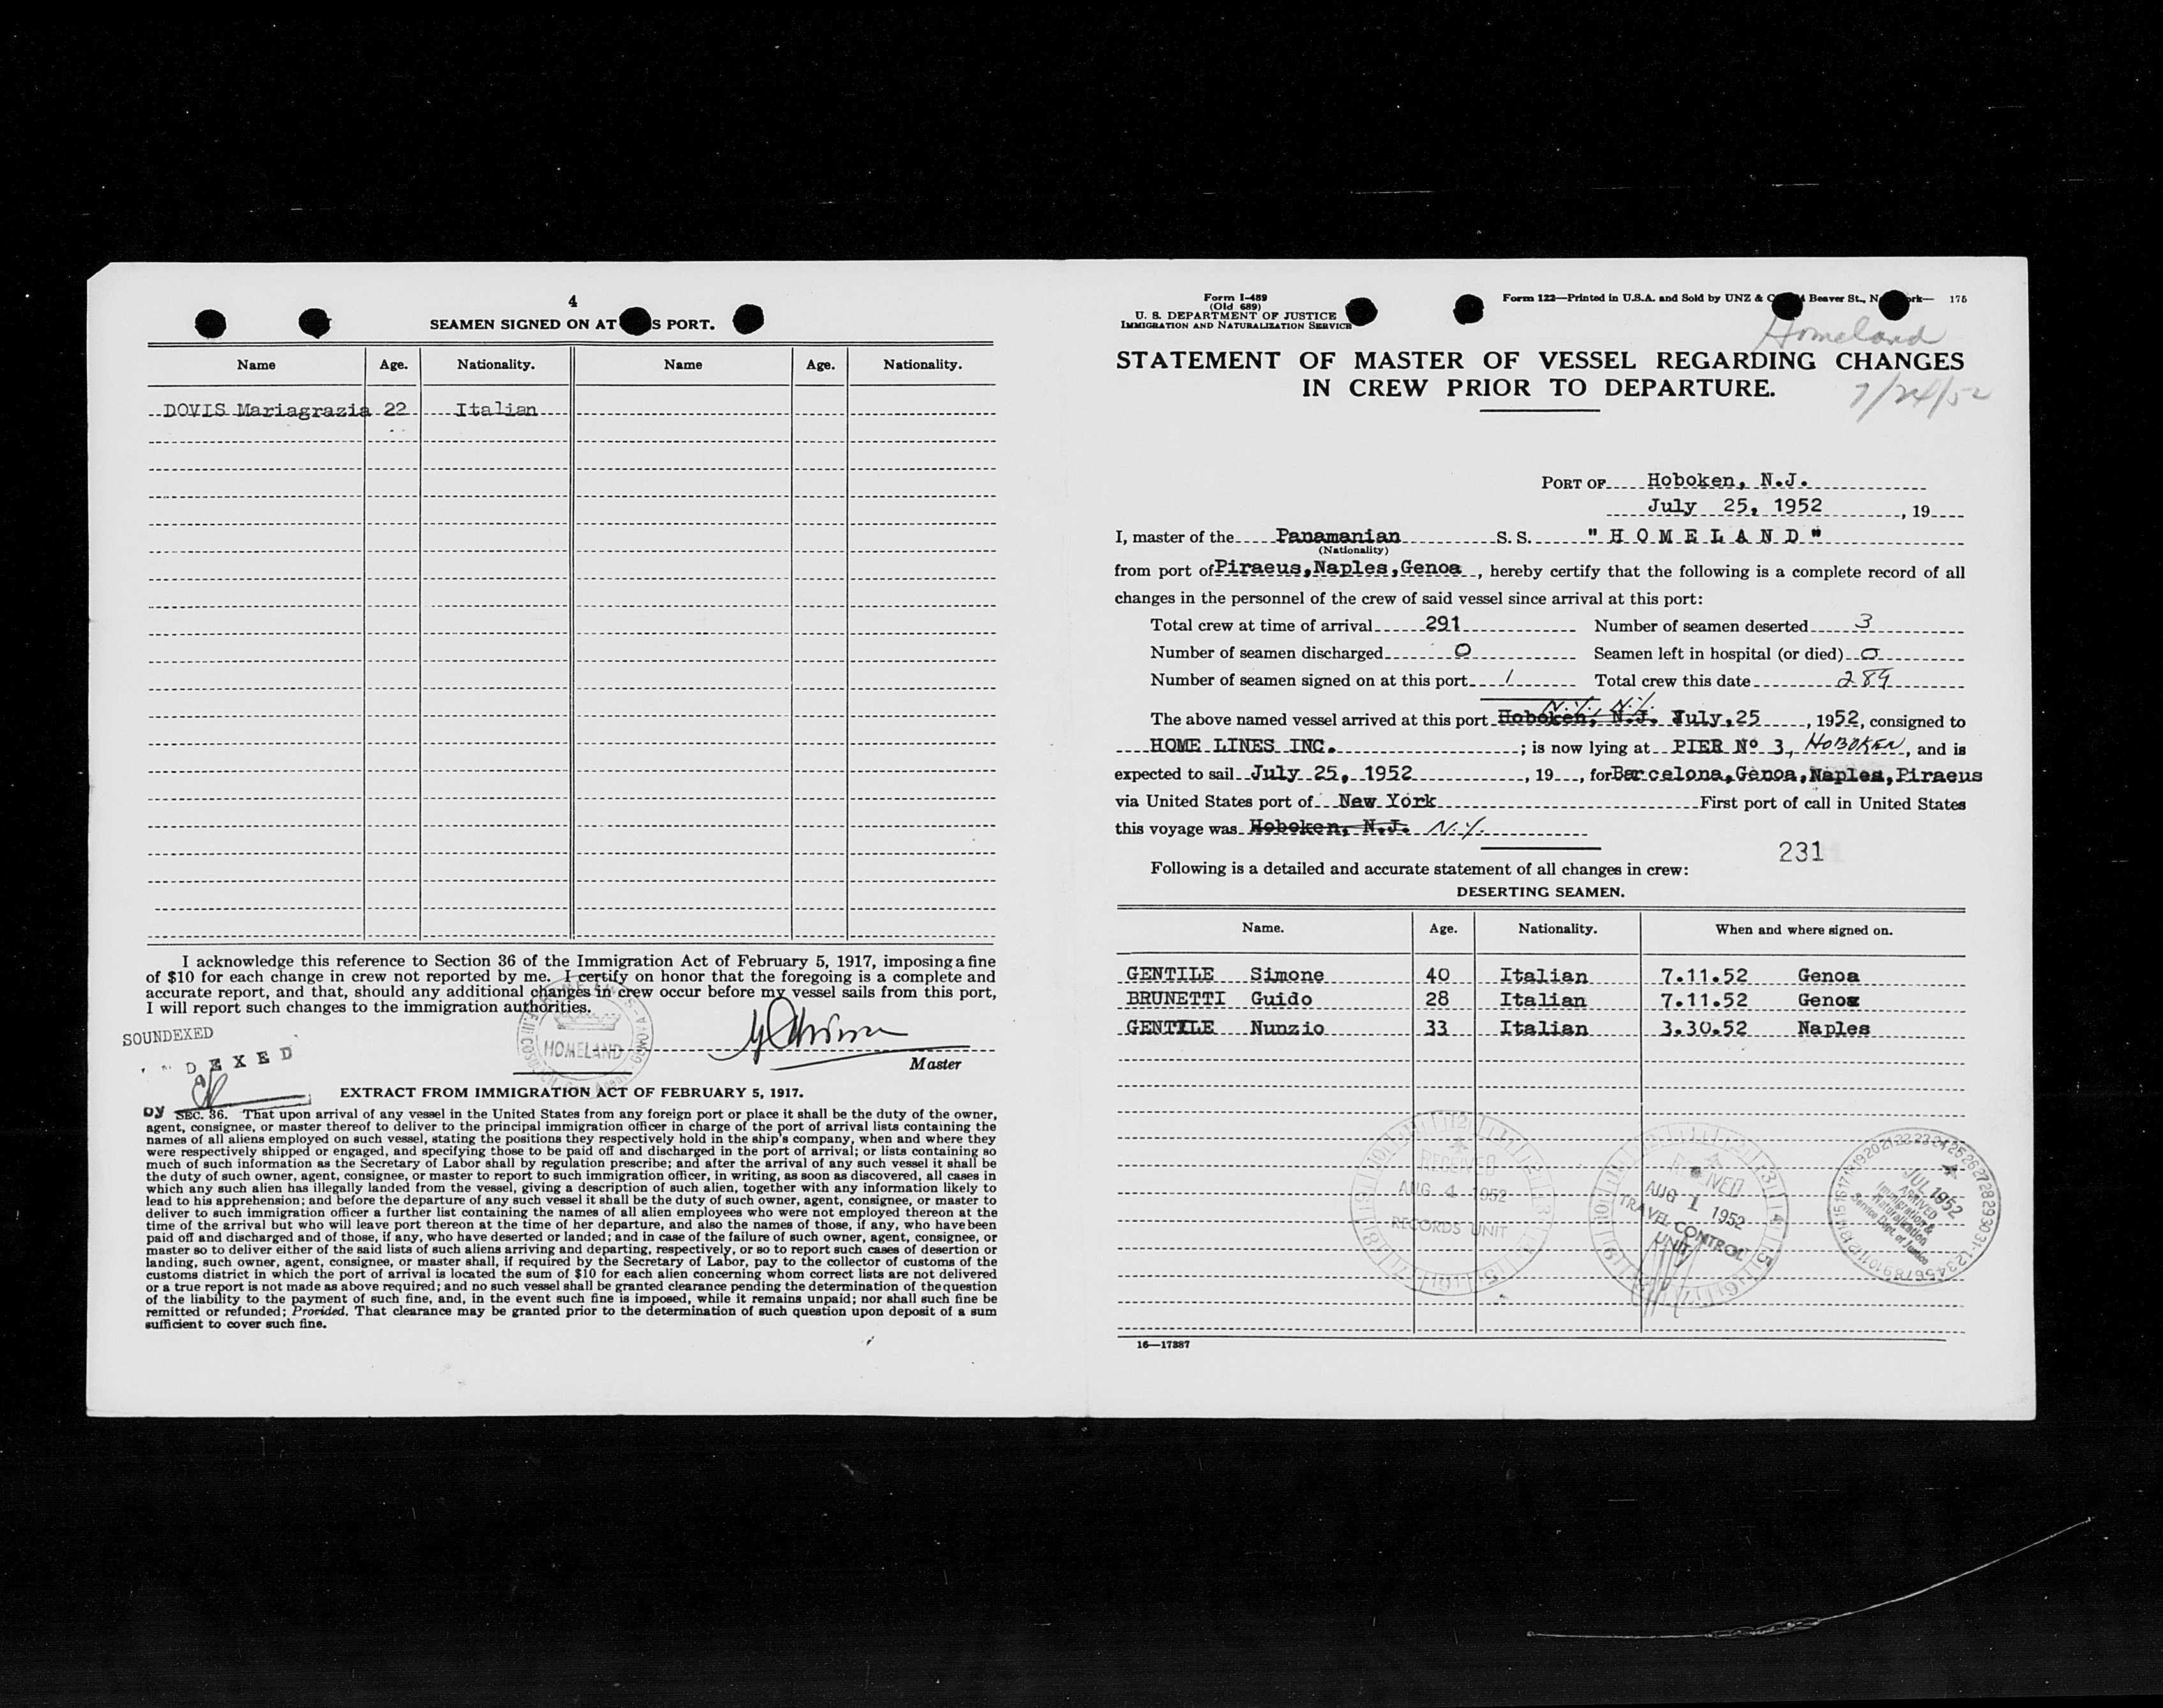 4
SEAMEN SIGNED ON AT S PORT.
Name Age. Nationality. Name Age. Nationality.
DOVIS Mariagrazia 22 Italian
I acknowledge this reference to Section 36 of the Immigration Act of February 5, 1917, imposing a fine
of $10 for each change in crew not reported by me. I certify on honor that the foregoing is a complete and
accurate report, and that, should any additional changes in crew occur before my vessel sails from this port,
I will report such changes to the immigration authorities.
SOUNDEXED
DEXED
HOMELAND
Master
EXTRACT FROM IMMIGRATION ACT OF FEBRUARY 5, 1917.
by SEC. 36. That upon arrival of any vessel in the United States from any foreign port or place it shall be the duty of the owner,
agent, consignee, or master thereof to deliver to the principal immigration officer in charge of the port of arrival lists containing the
names of all aliens employed on such vessel, stating the positions they respectively hold in the ship's company, when and where they
were respectively shipped or engaged, and specifying those to be paid off and discharged in the port of arrival; or lists containing so
much of such information as the Secretary of Labor shall by regulation prescribe; and after the arrival of any such vessel it shall be
the duty of such owner, agent, consignee, or master to report to such immigration officer, in writing, as soon as discovered, all cases in
which any such alien has illegally landed from the vessel, giving a description of such alien, together with any information likely to
lead to his apprehension; and before the departure of any such vessel it shall be the duty of such owner, agent, consignee, or master to
deliver to such immigration officer a further list containing the names of all alien employees who were not employed thereon at the
time of the arrival but who will leave port thereon at the time of her departure, and also the names of those, if any, who have been
paid off and discharged and of those, if any, who have deserted or landed; and in case of the failure of such owner, agent, consignee, or
master so to deliver either of the said lists of such aliens arriving and departing, respectively, or so to report such cases of desertion or
landing, such owner, agent, consignee, or master shall, if required by the Secretary of Labor, pay to the collector of customs of the
customs district in which the port of arrival is located the sum of $10 for each alien concerning whom correct lists are not delivered
or a true report is not made as above required; and no such vessel shall be granted clearance pending the determination of the question
of the liability to the payment of such fine, and, in the event such fine is imposed, while it remains unpaid; nor shall such fine be
remitted or refunded; Provided, That clearance may be granted prior to the determination of such question upon deposit of a sum
sufficient to cover such fine.
Form I-489
(Old 689)
U. S. DEPARTMENT OF JUSTICE
IMMIGRATION AND NATURALIZATION SERVICE
Form 122—Printed in U.S.A. and Sold by UNZ & C Beaver St., N rk— 175
Homeland
STATEMENT OF MASTER OF VESSEL REGARDING CHANGES
IN CREW PRIOR TO DEPARTURE.
7/24/52
PORT OF Hoboken, N.J.
July 25, 1952, 19
I, master of the Panamanian S. S. "HOMELAND"
(Nationality)
from port of Piraeus,Naples,Genoa, hereby certify that the following is a complete record of all
changes in the personnel of the crew of said vessel since arrival at this port:
Total crew at time of arrival 291 Number of seamen deserted 3
Number of seamen discharged 0 Seamen left in hospital (or died) 0
Number of seamen signed on at this port 1 Total crew this date 289
N.Y., N.Y.
The above named vessel arrived at this port Hoboken, N.J. July,25, 1952, consigned to
HOME LINES INC.; is now lying at PIER Nº 3, HOBOKEN, and is
expected to sail July 25, 1952, 19, for Barcelona,Genoa,Naples,Piraeus
via United States port of New York First port of call in United States
this voyage was Hoboken, N.J. N.Y.
231
Following is a detailed and accurate statement of all changes in crew:
DESERTING SEAMEN.
Name. Age. Nationality. When and where signed on.
GENTILE Simone 40 Italian 7.11.52 Genoa
BRUNETTI Guido 28 Italian 7.11.52 Genoa
GENTILE Nunzio 33 Italian 3.30.52 Naples
RECEIVED
AUG 4 1952
RECORDS UNIT
RECEIVED
AUG 1 1952
TRAVEL CONTROL
UNIT
JUL 1952
ARRIVED
Immigration &
Naturalization
Service Dept. of Justice
16—17387